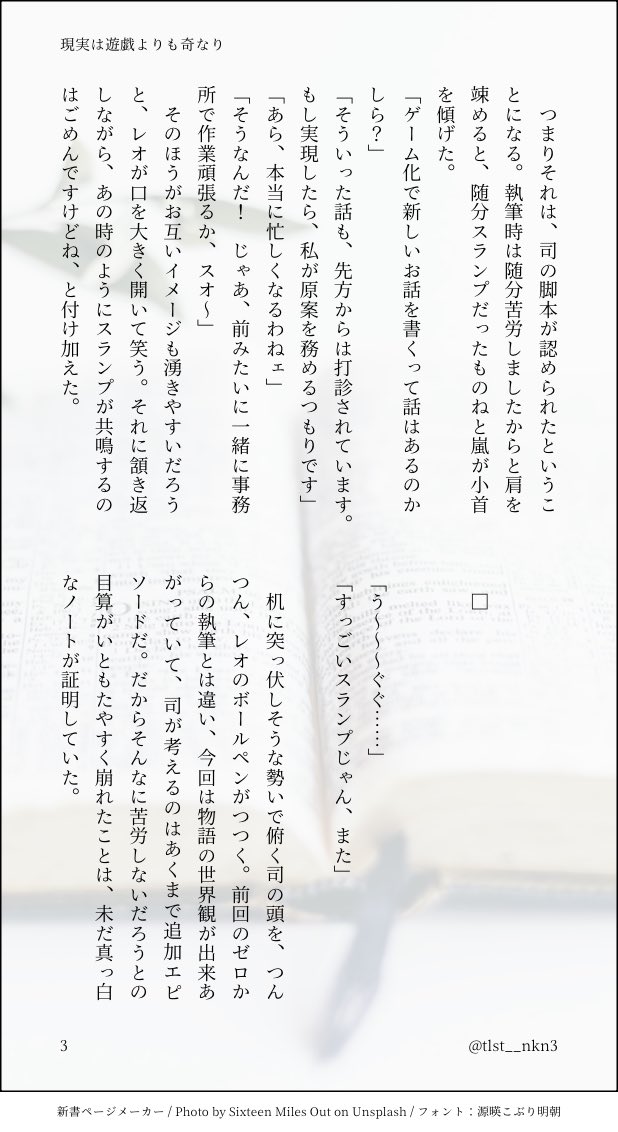 現実は遊戯よりも奇なり
　つまりそれは、司の脚本が認められたというこ
とになる。執筆時は随分苦労しましたからと肩を
竦めると、随分スランプだったものねと嵐が小首
を傾げた。
「ゲーム化で新しいお話を書くって話はあるのか
しら？」
「そういった話も、先方からは打診されています。
もし実現したら、私が原案を務めるつもりです」
「あら、本当に忙しくなるわねェ」
「そうなんだ！　じゃあ、前みたいに一緒に事務
所で作業頑張るか、スオ〜」
　そのほうがお互いイメージも湧きやすいだろう
と、レオが口を大きく開いて笑う。それに頷き返
しながら、あの時のようにスランプが共鳴するの
はごめんですけどね、と付け加えた。
□
「う〜〜〜ぐぐ……」
「すっごいスランプじゃん、また」
　机に突っ伏しそうな勢いで俯く司の頭を、つん
つん、レオのボールペンがつつく。前回のゼロか
らの執筆とは違い、今回は物語の世界観が出来あ
がっていて、司が考えるのはあくまで追加エピ
ソードだ。だからそんなに苦労しないだろうとの
目算がいともたやすく崩れたことは、未だ真っ白
なノートが証明していた。
3
@tlst__nkn3
新書ページメーカー / Photo by Sixteen Miles Out on Unsplash / フォント：源暎こぶり明朝